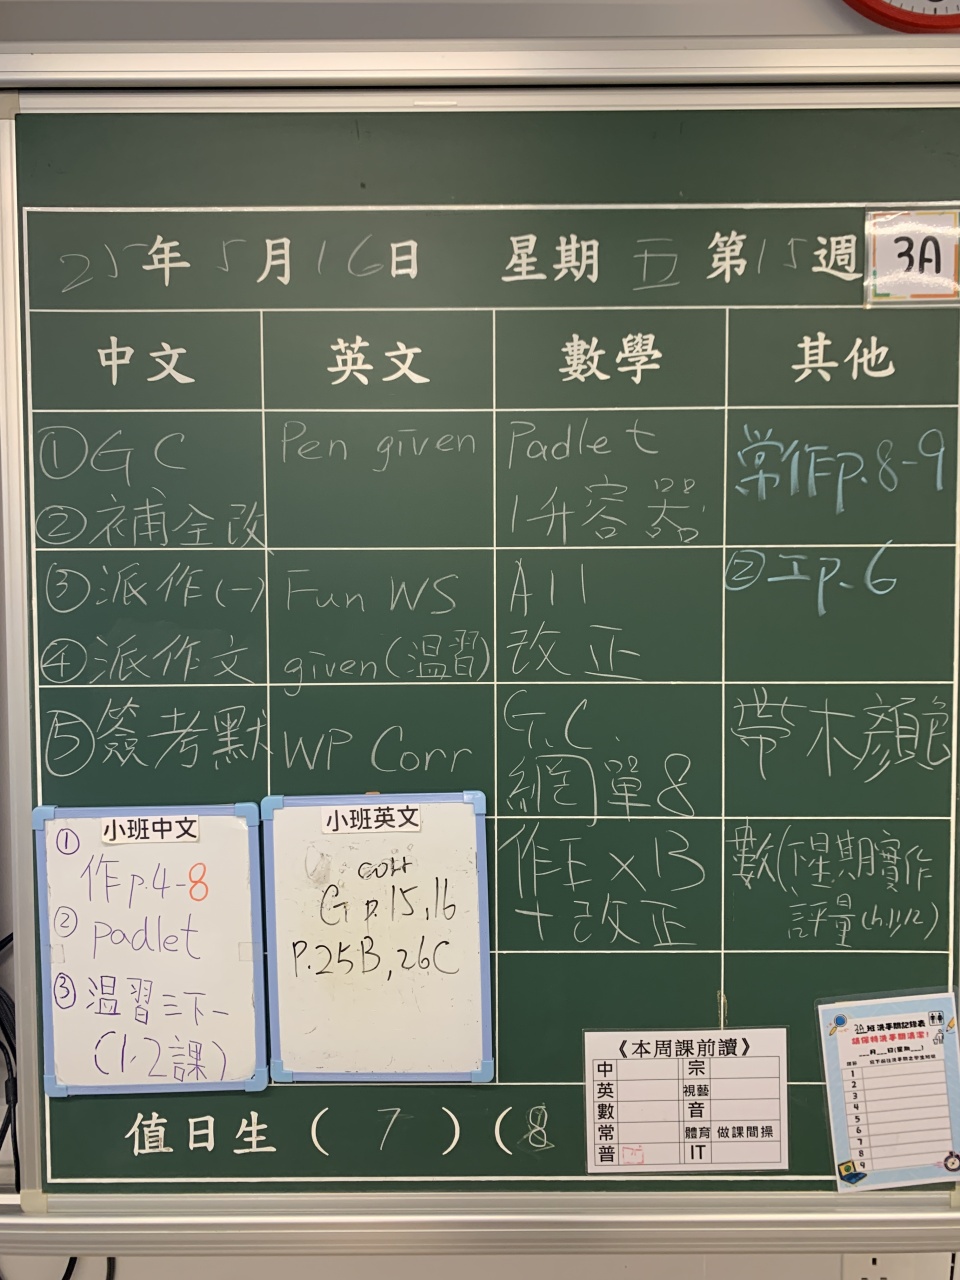 25年5月16日 星期五 第15週 3A
中文 英文 數學 其他
①GC
②補全改
③派作(一)
④派作文
⑤簽考默
Pen given
Fun WS
given(溫習)
WP Corr
Padlet
1升容器
All
改正
G.C.
網單8
作E x 13
+改正
常作p.8-9
②工p.6
帶木顏色
數(星期實作
評量(h.11,12)
小班中文
①
作p.4-8
②
padlet
③溫習三下一
(1.2課)
小班英文
corr
G p.15,16
P.25B,26C
值日生(7)(8
《本周課前讀》
中 宗
英 視藝
數 音
常 體育 做課間操
普 IT
3A班洗手間記錄表
請保持洗手間清潔!
__月__日(星期__)
1
2
3
4
5
6
7
8
9